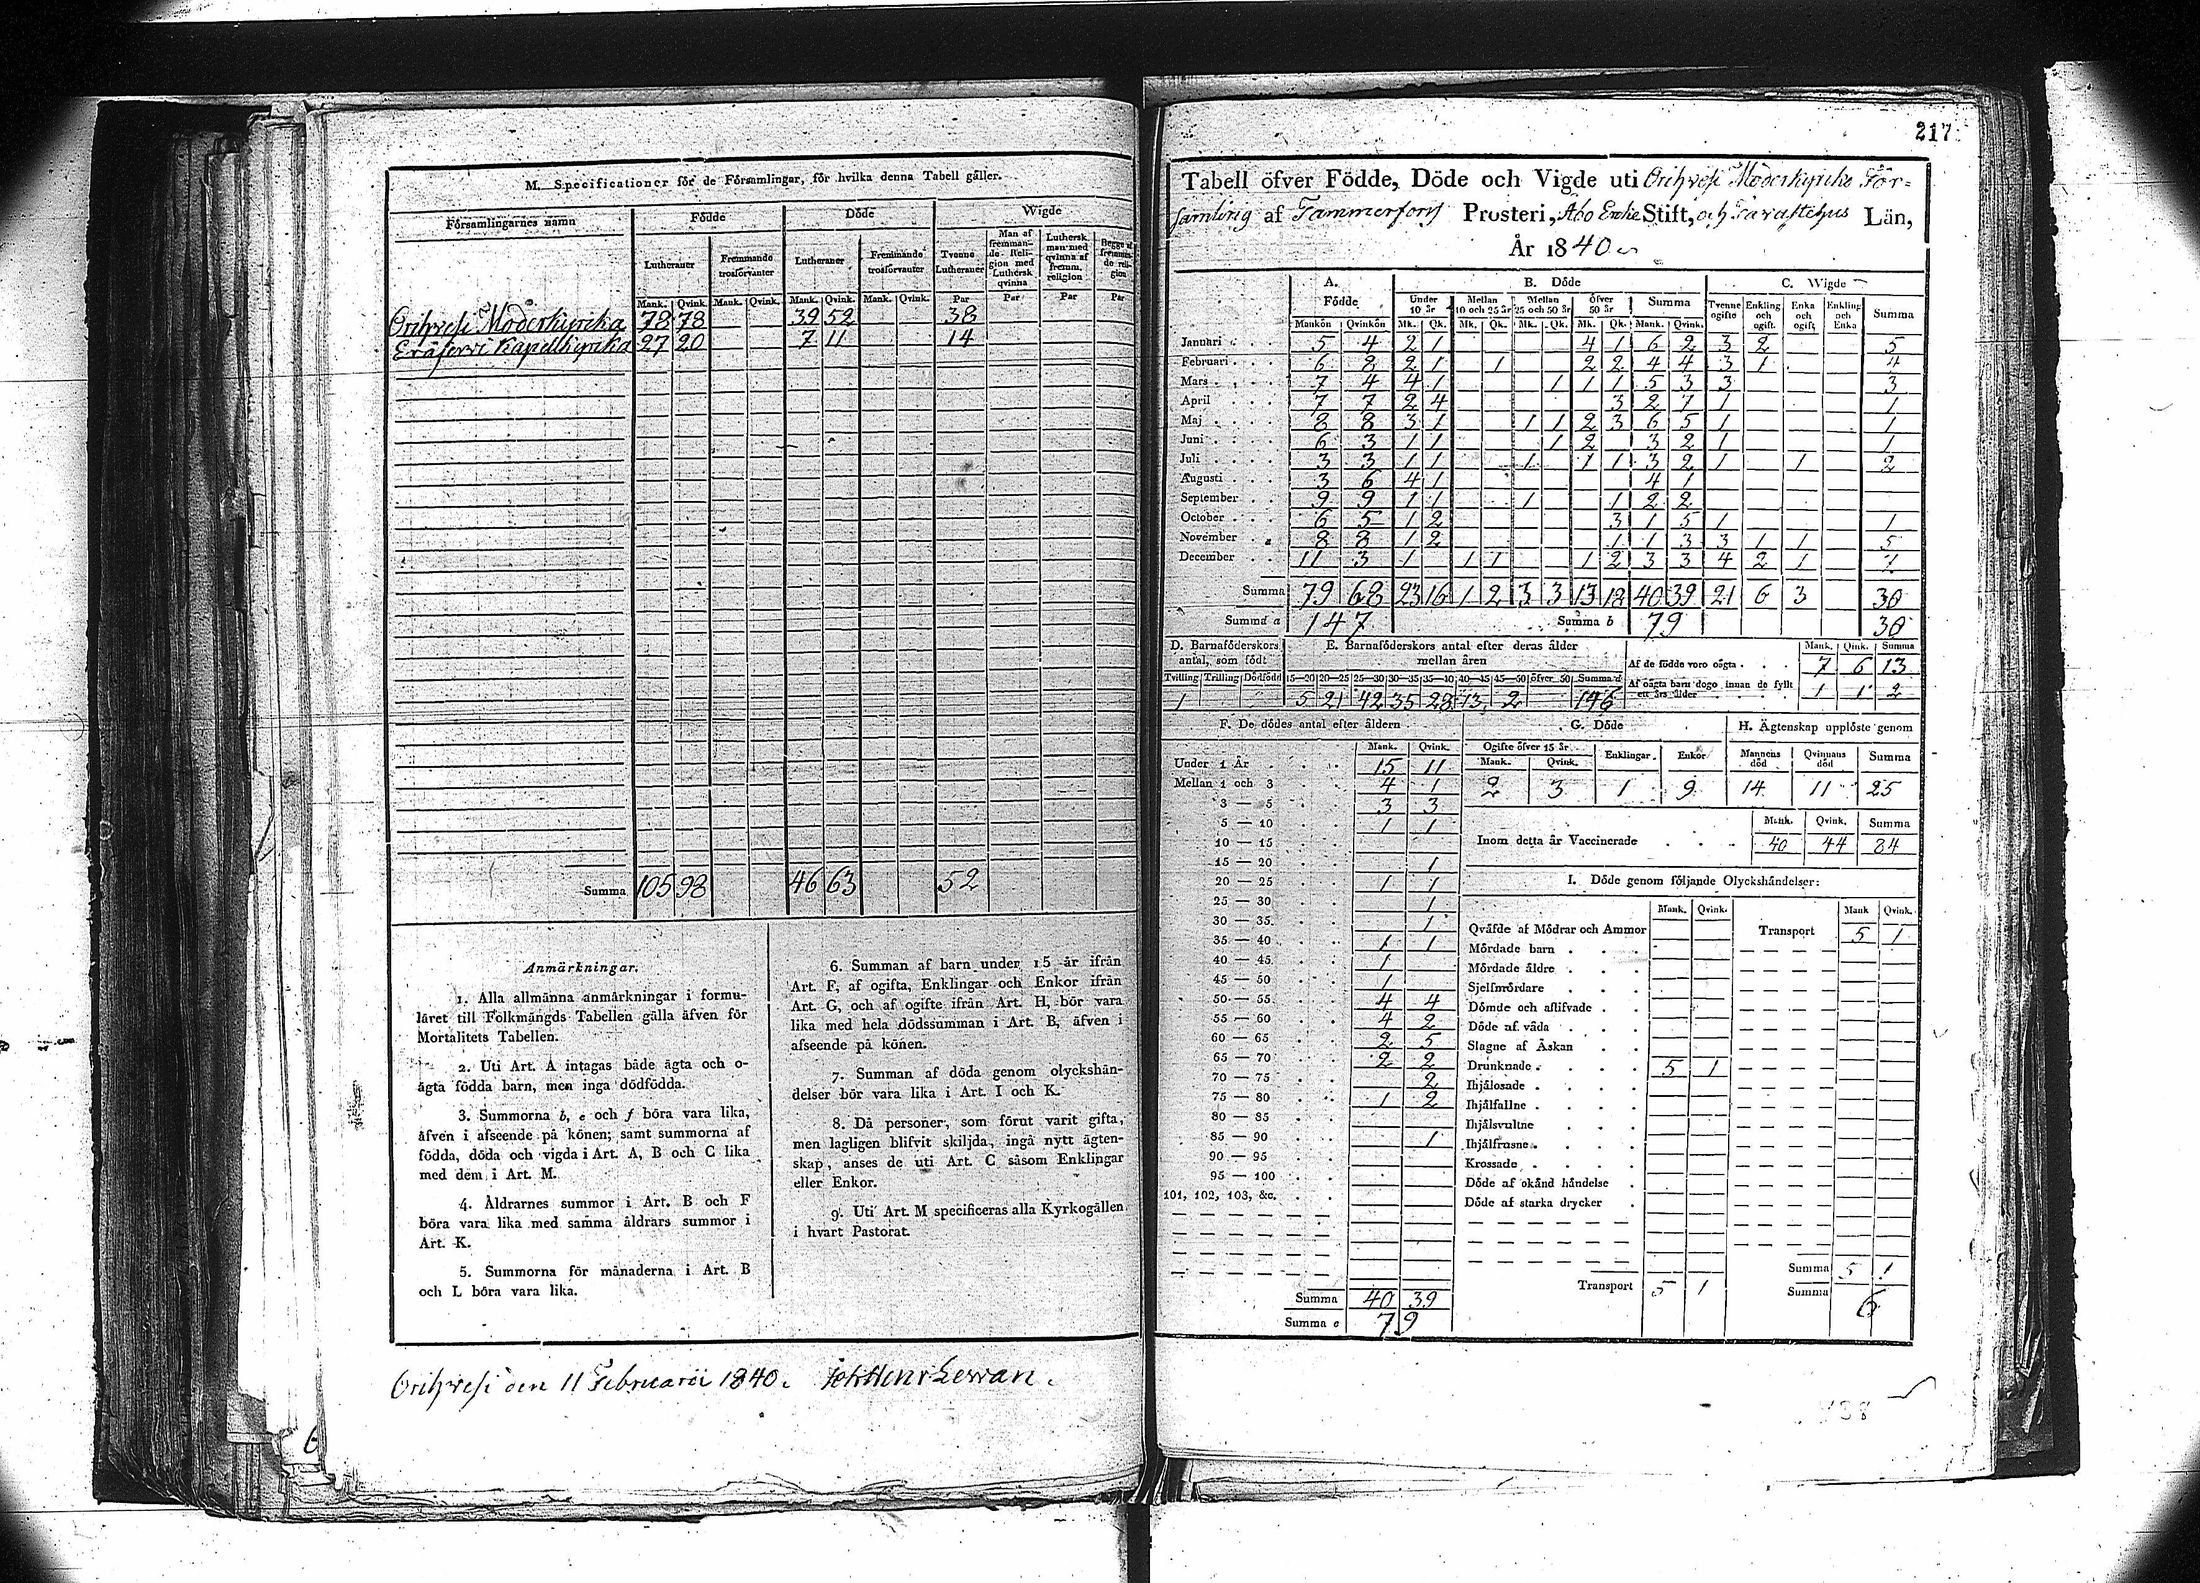 M. Specificationer för de Församlingar, för hvilka denna Tabell gäller.
Församlingarnes namn Födde Döde Wigde
Lutheraner Fremmande trosförvanter Lutheraner Fremmande trosförvanter Tvenne Lutheraner Man af fremmande Religion med Luthersk qvinna Luthersk man med qvinna af fremm. religion Begge af fremmande religion
Mank. Qvink. Mank. Qvink. Mank. Qvink. Mank. Qvink. Par Par Par Par
Orihvesi Moderkyrcka 78 78 39 52 38
Eräjervi Kapellkyrcka 27 20 7 11 14
Summa 105 98 46 63 52
Anmärkningar.
1. Alla allmänna anmärkningar i formu-
läret till Folkmängds Tabellen gälla äfven för
Mortalitets Tabellen.
2. Uti Art. A intagas både ägta och o-
ägta födda barn, men inga dödfödda.
3. Summorna b, e och f böra vara lika,
äfven i afseende på könen; samt summorna af
födda, döda och vigda i Art. A, B och C lika
med dem i Art. M.
4. Åldrarnes summor i Art. B och F
böra vara lika med samma åldrars summor i
Art. K.
5. Summorna för månaderna i Art. B
och L böra vara lika.
6. Summan af barn under 15 år ifrån
Art. F, af ogifta, Enklingar och Enkor ifrån
Art. G, och af ogifte ifrån Art. H, bör vara
lika med hela dödssumman i Art. B, äfven i
afseende på könen.
7. Summan af döda genom olyckshän-
delser bör vara lika i Art. I och K.
8. Då personer, som förut varit gifta,
men lagligen blifvit skiljda, ingå nytt ägten-
skap, anses de uti Art. C såsom Enklingar
eller Enkor.
9. Uti Art. M specificeras alla Kyrkogällen
i hvart Pastorat.
Orihvesi den 11 Februarii 1840.
217
Tabell öfver Födde, Döde och Vigde uti Orihvesi Moderkyrcko För-
samling af Tammerfors Prosteri, Åbo Erke Stift, och Tavastehus Län,
År 1840
A. Födde B. Döde C. Wigde
Under 10 år Mellan 10 och 25 år Mellan 25 och 50 år Öfver 50 år Summa Tvenne ogifte Enkling och ogift. Enka och ogift. Enkling och Enka Summa
Mankön Qvinkön Mk. Qk. Mk. Qk. Mk. Qk. Mk. Qk. Mank. Qvink.
Januari 5 4 2 1 4 1 6 2 3 2 5
Februari 6 8 2 1 1 2 2 4 4 3 1 4
Mars 7 4 4 1 1 1 1 5 3 3 3
April 7 7 2 4 3 2 7 1 1
Maj 8 8 3 1 1 1 2 3 6 5 1 1
Juni 6 3 1 1 1 2 3 2 1 1
Juli 3 3 1 1 1 1 1 3 2 1 1 2
Augusti 3 6 4 1 4 1
September 9 9 1 1 1 1 2 2
October 6 5 1 2 3 1 5 1 1
November 8 8 1 2 1 1 3 3 1 1 5
December 11 3 1 1 1 1 2 3 3 4 2 1 7
Summa 79 68 23 16 1 2 3 3 13 18 40 39 21 6 3 30
Summa a 147 Summa b 79 30
D. Barnaföderskors antal, som födt
Tvilling Trilling Dödfödd
1
E. Barnaföderskors antal efter deras ålder mellan åren
15—20 20—25 25—30 30—35 35—40 40—45 45—50 öfver 50 Summa d
5 21 42 35 28 13 2 146
Mank. Qink. Summa
Af de födde voro oägta 7 6 13
Af oägta barn dogo innan de fyllt ett års ålder 1 1 2
F. De dödes antal efter åldern
Mank. Qvink.
Under 1 År 15 11
Mellan 1 och 3 4 1
3 — 5 3 3
5 — 10 1 1
10 — 15
15 — 20 1
20 — 25 1 1
25 — 30 1
30 — 35 1
35 — 40 1 1
40 — 45 1
45 — 50 1
50 — 55 4 4
55 — 60 4 2
60 — 65 2 5
65 — 70 2 2
70 — 75 2
75 — 80 1 2
80 — 85
85 — 90 1
90 — 95
95 — 100
101, 102, 103, &c.
Summa 40 39
Summa e 79
G. Döde
Ogifte öfver 15 år Enklingar Enkor
Mank. Qvink.
2 3 1 9
H. Ägtenskap upplöste genom
Mannens död Qvinnans död Summa
14 11 25
Mank. Qvink. Summa
Inom detta år Vaccinerade 40 44 84
I. Döde genom följande Olyckshändelser:
Mank. Qvink. Mank Qvink.
Qväfde af Mödrar och Ammor Transport 5 1
Mördade barn
Mördade äldre
Sjelfmördare
Dömde och aflifvade
Döde af våda
Slagne af Åskan
Drunknade 5 1
Ihjälosade
Ihjälfallne
Ihjälsvultne
Ihjälfrusne
Krossade
Döde af okänd händelse
Döde af starka drycker
Summa 5 1
Transport 5 1 Summa 6